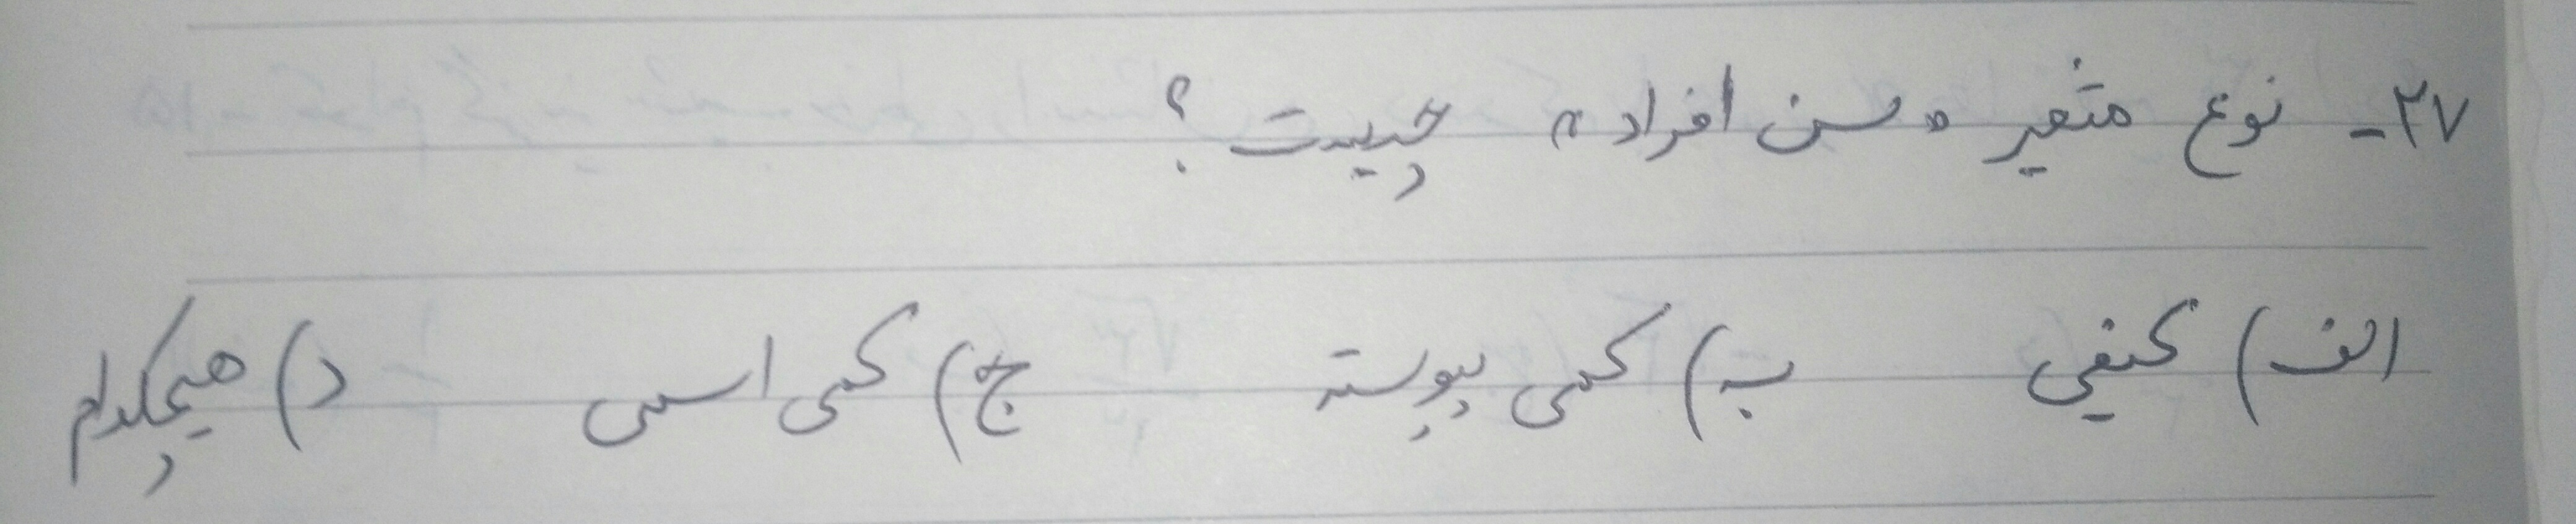 ۲۷- نوع متغیر «سن افراد» چیست؟
الف) کیفی ب) کمی پیوسته ج) کمی اسمی د) هیچکدام